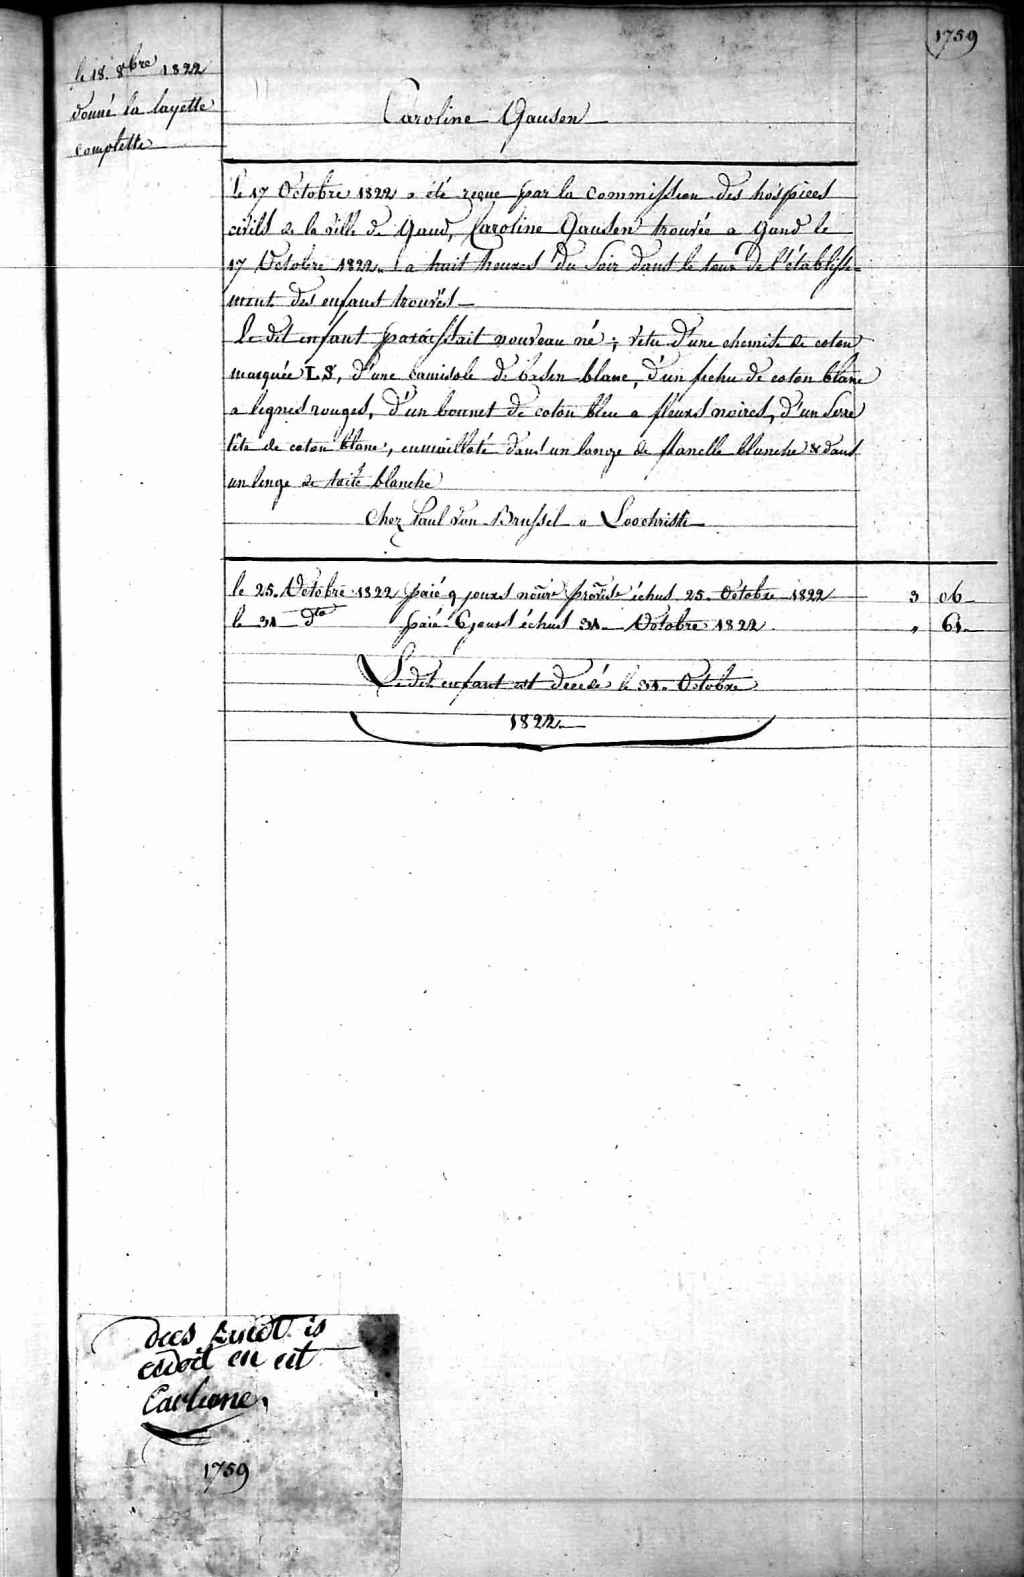 1759
le 18. 8bre 1822
donné la layette
complette
Caroline Gausen
Le 17 Octobre 1822 a été reçue par la commission des hospices
civils de la ville de Gand, Caroline Gausen trouvée a Gand le
17 Octobre 1822 a huit heures du soir dans le tour de l'établisse-
ment des enfans trouvés
Le dit enfant paraissait nouveau né; vetu d'une chemise de coton
marquée LS, d'une camisole de basin blanc, d'un fichu de coton blanc
a lignes rouges, d'un bonnet de coton bleu a fleurs noires, d'un serre
tête de coton blanc, enmailloté dans un lange de flanelle blanche & dans
un linge de toile blanche
Chez Paul Van Brussel a Loochristi
le 25. Octobre 1822 paié 9 jours échus 25. Octobre 1822 3 06
le 31 dto paié 6 jours échus 31 Octobre 1822 " 61
Le dit enfant est decedé le 31. Octobre
1822
dees kindt is
en
1759